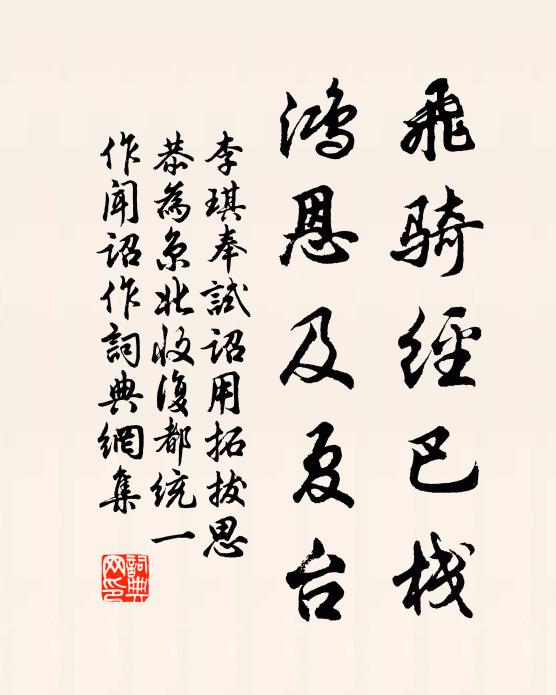 飛骑經巴棧
鴻恩及夏台
李琪奉試詔用拓拔思
恭為京北收復都統一
作聞詔作詞典網集
詞典网印